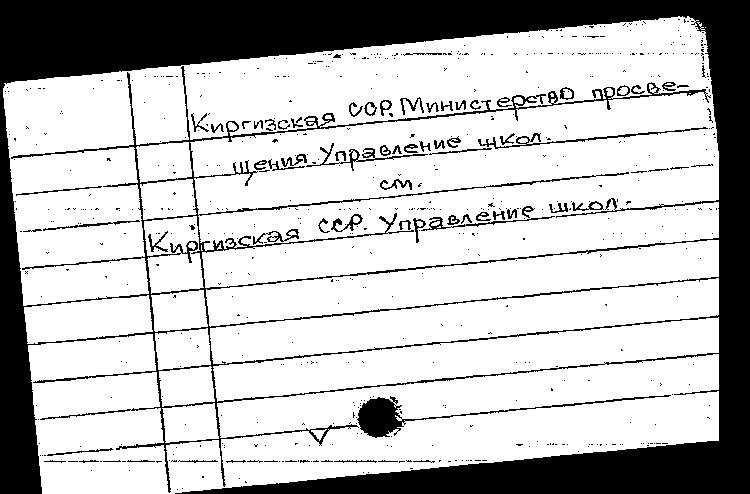 Киргизская ССР. Министерство просве-
щения. Управление школ.
см.
Киргизская ССР. Управление школ.